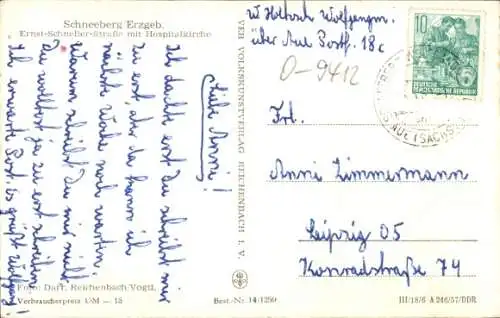 Schneeberg Erzgeb.
Ernst-Schneller-Straße mit Hospitalkirche
Liebe Anni!
Ich dachte erst Du schreibst mir
zu erst, aber da kann ich
nächste Woche noch warten.
Warum schreibst Du mir nicht
Du wolltest ja zu erst schreiben
Ich erwarte Post. es grüßt Wolfgang!
Foto: Darr, Reichenbach Vogtl.
Verbraucherpreis DM —.15
Best.-Nr. 14/1250
VEB VOLKSKUNSTVERLAG REICHENBACH I. V.
Wolfgang
über Aue Postf. 18c
O-9412
10
DEUTSCHE
DEMOKRATISCHE REPUBLIK
Frl.
Anni Zimmermann
Leipzig O5
Konradstraße 74
III/18/6 A 246/57/DDR